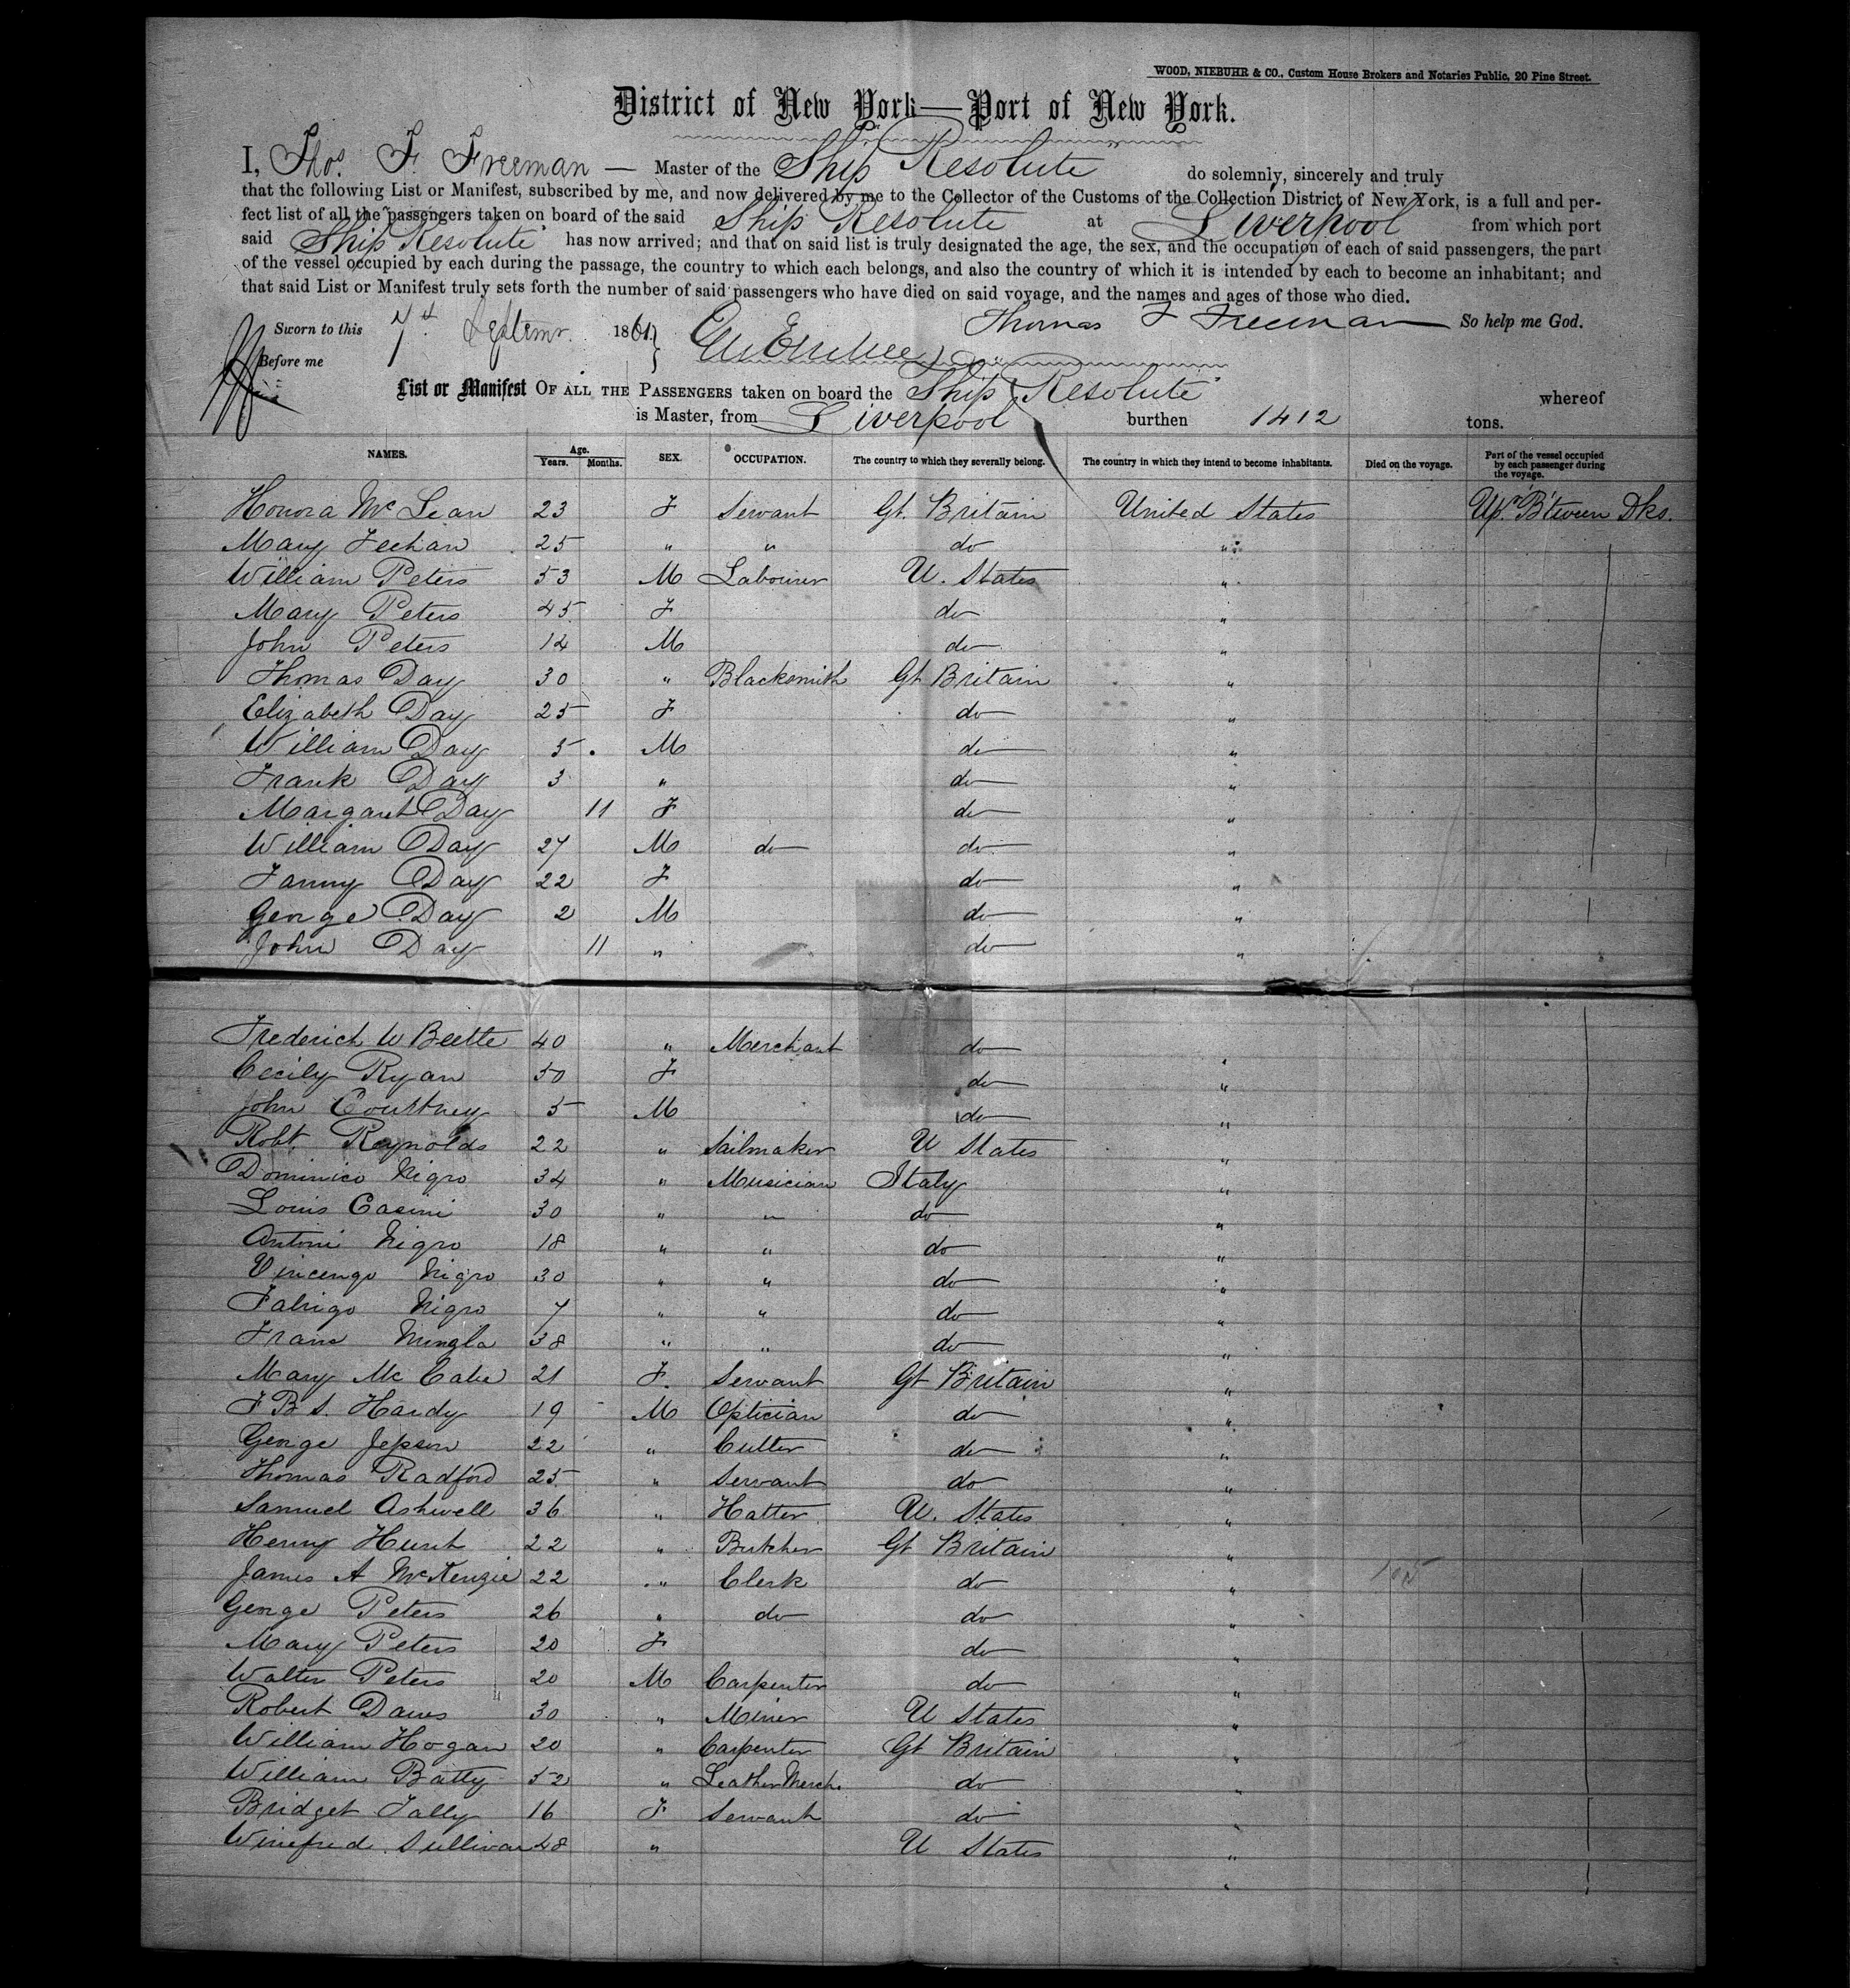 WOOD, NIEBUHR & CO., Custom House Brokers and Notaries Public, 20 Pine Street.
District of New York—Port of New York.
I, Thos. F. Freeman — Master of the Ship Resolute do solemnly, sincerely and truly
that the following List or Manifest, subscribed by me, and now delivered by me to the Collector of the Customs of the Collection District of New York, is a full and per-
fect list of all the passengers taken on board of the said Ship Resolute at Liverpool from which port
said Ship Resolute has now arrived; and that on said list is truly designated the age, the sex, and the occupation of each of said passengers, the part
of the vessel occupied by each during the passage, the country to which each belongs, and also the country of which it is intended by each to become an inhabitant; and
that said List or Manifest truly sets forth the number of said passengers who have died on said voyage, and the names and ages of those who died.
Sworn to this 7th Septemr. 1861 Thomas F Freeman So help me God.
Before me
List or Manifest OF ALL THE PASSENGERS taken on board the Ship Resolute whereof
is Master, from Liverpool burthen 1412 tons.
NAMES. Age. Years. Months. SEX. OCCUPATION. The country to which they severally belong. The country in which they intend to become inhabitants. Died on the voyage. Part of the vessel occupied by each passenger during the voyage.
Honora McLean 23 F Servant Gt. Britain United States Upr. B'tween Dks.
Mary Feehan 25 " " do "
William Peters 53 M Labourer U. States "
Mary Peters 45 F do "
John Peters 14 M do "
Thomas Day 30 " Blacksmith Gt Britain "
Elizabeth Day 25 F do "
William Day 5 M do "
Frank Day 3 " do "
Margaret Day 11 F do "
William Day 27 M do do "
Fanny Day 22 F do "
George Day 2 M do "
John Day 11 " do "
Frederich W Beette 40 " Merchant do "
Cecily Ryan 50 F do "
John Courtney 5 M do "
Robt Reynolds 22 " Sailmaker U States "
Dominico Nigro 34 " Musician Italy "
Louis Casini 30 " " do "
Antoni Nigro 18 " " do "
Vincengo Nigro 30 " " do "
Nigro 7 " " do "
38 " " do "
Mary McCabe 21 F. Servant Gt Britain "
F B S. Hardy 19 M Optician do "
George Jepson 22 " Cutler do "
Thomas Radford 25 " Servant do "
Samuel Ashwell 36 " Hatter U. States "
Henry Hunt 22 " Butcher Gt Britain "
James A McKenzie 22 " Clerk do "
George Peters 26 " do do "
Mary Peters 20 F do "
Walter Peters 20 M Carpenter do "
Robert Davis 30 " Miner U States "
William Hogan 20 " Carpenter Gt Britain "
William Batty 52 " Leather Merch. do "
Bridget Fally 16 F Servant do "
Winefred Sullivan 48 " U States "
"